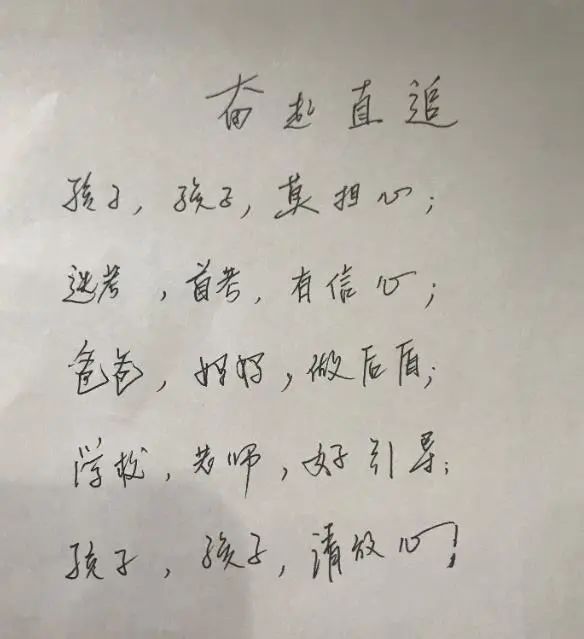 奋起直追
孩子，孩子，莫担心；
选考，首考，有信心；
爸爸，妈妈，做后盾；
学校，老师，好引导；
孩子，孩子，请放心！